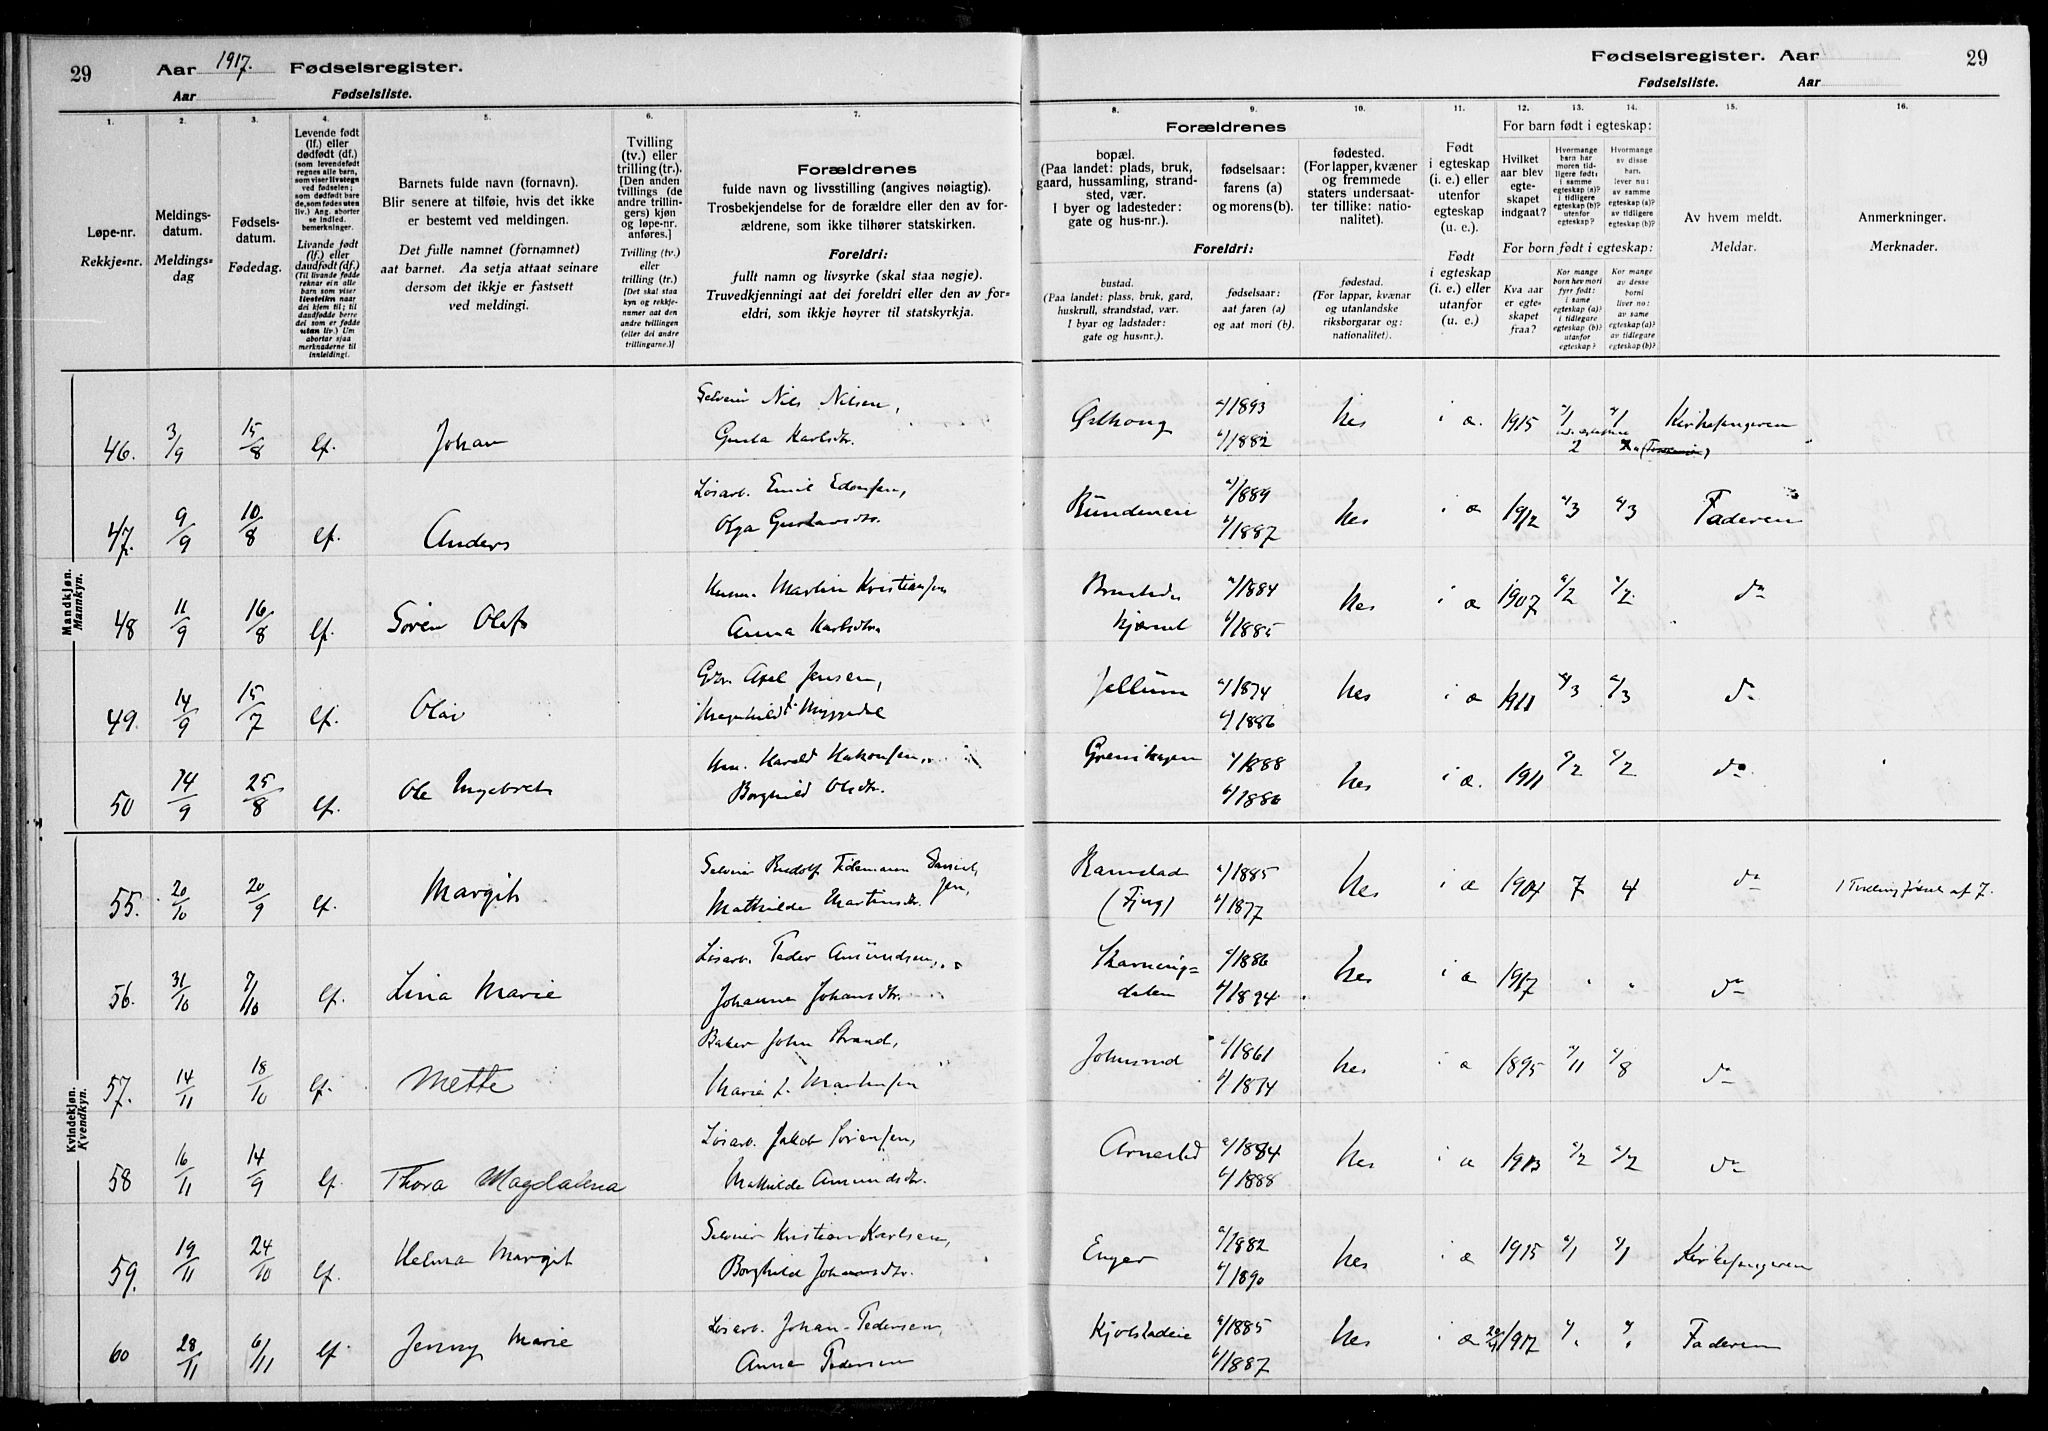 29 Aar 1917. Fødselsregister.
Aar Fødselsliste.
Fødselsregister. Aar 29
Fødselsliste. Aar
1. 2. 3. 4. 5. 6. 7. 8. 9. 10. 11. 12. 13. 14. 15. 16.
Løpe-nr.
Rekkje-nr.
Meldings-
datum.
Meldings-
dag
Fødsels-
datum.
Fødedag.
Levende født
(lf.) eller
dødfødt (df.)
(som levendefødt
regnes alle barn,
som viser livstegn
ved fødselen;
som dødfødt bare
de, som fødes uten
liv.) Ang. aborter
se indled.
bemerkninger.
Livande født
(lf.) eller
daudfødt (df.)
(Til livande fødde
reknar ein alle
barn som viser
livsteikn naar
dei kjem til; til
daudfødde berre
dei som er fødde
utan liv.) Um
abortar sjaa
merknaderne til
innleidingi.
Barnets fulde navn (fornavn).
Blir senere at tilføie, hvis det ikke
er bestemt ved meldingen.
Det fulle namnet (fornamnet)
aat barnet. Aa setja attaat seinare
dersom det ikkje er fastsett
ved meldingi.
Tvilling
(tv.) eller
trilling (tr.).
[Den anden
tvillings (de
andre trillin-
gers) kjøn
og løpe-nr.
anføres.]
Tvilling (tv.)
eller
trilling (tr.)
[Det skal staa
kyn og rekkje-
numer aat den
andre tvillingen
(eller dei andre
trillingarne.)]
Forældrenes
fulde navn og livsstilling (angives nøiagtig).
Trosbekjendelse for de forældre eller den av for-
ældrene, som ikke tilhører statskirken.
Foreldri:
fullt namn og livsyrke (skal staa nøgje).
Truvedkjenningi aat dei foreldri eller den av for-
eldri, som ikkje høyrer til statskyrkja.
Forældrenes
bopæl.
(Paa landet: plads, bruk,
gaard, hussamling, strand-
sted, vær.
I byer og ladesteder:
gate og hus-nr.).
fødselsaar:
farens (a)
og morens (b).
fødested.
(For lapper, kvæner
og fremmede
staters undersaat-
ter tillike: natio-
nalitet).
Foreldri:
bustad.
(Paa landet: plass, bruk, gard,
huskrull, strandstad, vær.
I byar og ladstader:
gate og hus-nr.).
fødselsaar:
aat faren (a)
og aat mori (b).
fødestad.
(For lappar, kvænar
og utanlandske
riksborgarar og:
nationalitet).
Født
i egteskap
(i. e.) eller
utenfor
egteskap
(u. e.).
Født
i egteskap
(i. e.) eller
utanfor
egteskap
(u. e.).
For barn født i egteskap:
Hvilket
aar blev
egte-
skapet
indgaat?
Hvormange
barn har
moren tid-
ligere født:
i samme
egteskap (a)?
utenfor
egteskap (b)?
Hvormange
av disse
barn
lever nu:
av samme
egteskap (a)?
av tidligere
egteskap (b)?
For born født i egteskap:
Kva aar
er egte-
skapet
fraa?
Kor mange
born hev mori
fyrr født:
i same
egteskap (a)?
i tidlegare
egteskap (b)?
utanfor
egteskap?
Kor mange
av desse
borni
liver no:
av same
egteskap (a)?
av tidlegare
egteskap (b)?
Av hvem meldt.
Meldar.
Anmerkninger.
Merknader.
Mandkjøn.
Mannkyn.
46. 3/9 15/8 lf. Johan Nils Nilsen, a/1893 hes i æ. 1915 a/1 a/1 Kirkesangeren
Karlsdtr. b/1882 2
47. 9/9 10/8 lf. Anders Løsarb. Emil a/1889 hes i æ 1912 a/3 a/3 Faderen
Olga Gustavsdtr. b/1887
48 11/9 16/8 lf. Søren Olaf Martin Kristiansen a/1884 hes i æ 1907 a/2 a/2 do
Anna Karlsdtr. kjernet b/1885
49. 14/9 15/7 lf. Olav Axel Jensen, Jellum a/1874 hes i æ 1911 a/3 a/3 do
b/1886
50 14/9 25/8 lf. Ole Ingebret Harald Hakonsen, a/1888 hes i æ. 1911 a/2 a/2 do
Borghild Olsdtr. b/1886
Kvindekjøn.
Kvendkyn.
55. 20/10 20/9 lf. Margit Selveier Rudolf Tidemann Daniel- Ramstad a/1885 hes i æ 1904 7 4 do
sen, Mathilde Martinsdtr. b/1877
56. 31/10 7/10 lf. Lina Marie Løsarb. Peder Amundsen, a/1886 hes i æ 1917 " " do
Johanne Johansdtr. dalen b/1894
57. 14/11 18/10 lf. Mette Baker John Strand, Johnsrud a/1861 hes i æ 1895 a/11 a/8 do
Marie L. Martinsen b/1874
58 16/11 14/9 lf. Thora Magdalena Løsarb. Jakob Sørensen, Arnestad a/1884 hes i æ 1913 a/2 a/2 do
Mathilde Amundsdtr. b/1888
59. 19/11 24/10 lf. Helma Margit Selveier Kristian Karlsen, Enger a/1882 hes i æ 1915 a/1 a/1 Kirkesangeren
Borghild Johansdtr. b/1890
60 28/11 6/11 lf. Jenny Marie Løsarb. Johan Pedersen, Kjølstadeie a/1885 hes i æ 1917 " " Faderen
Anna Pedersen b/1887